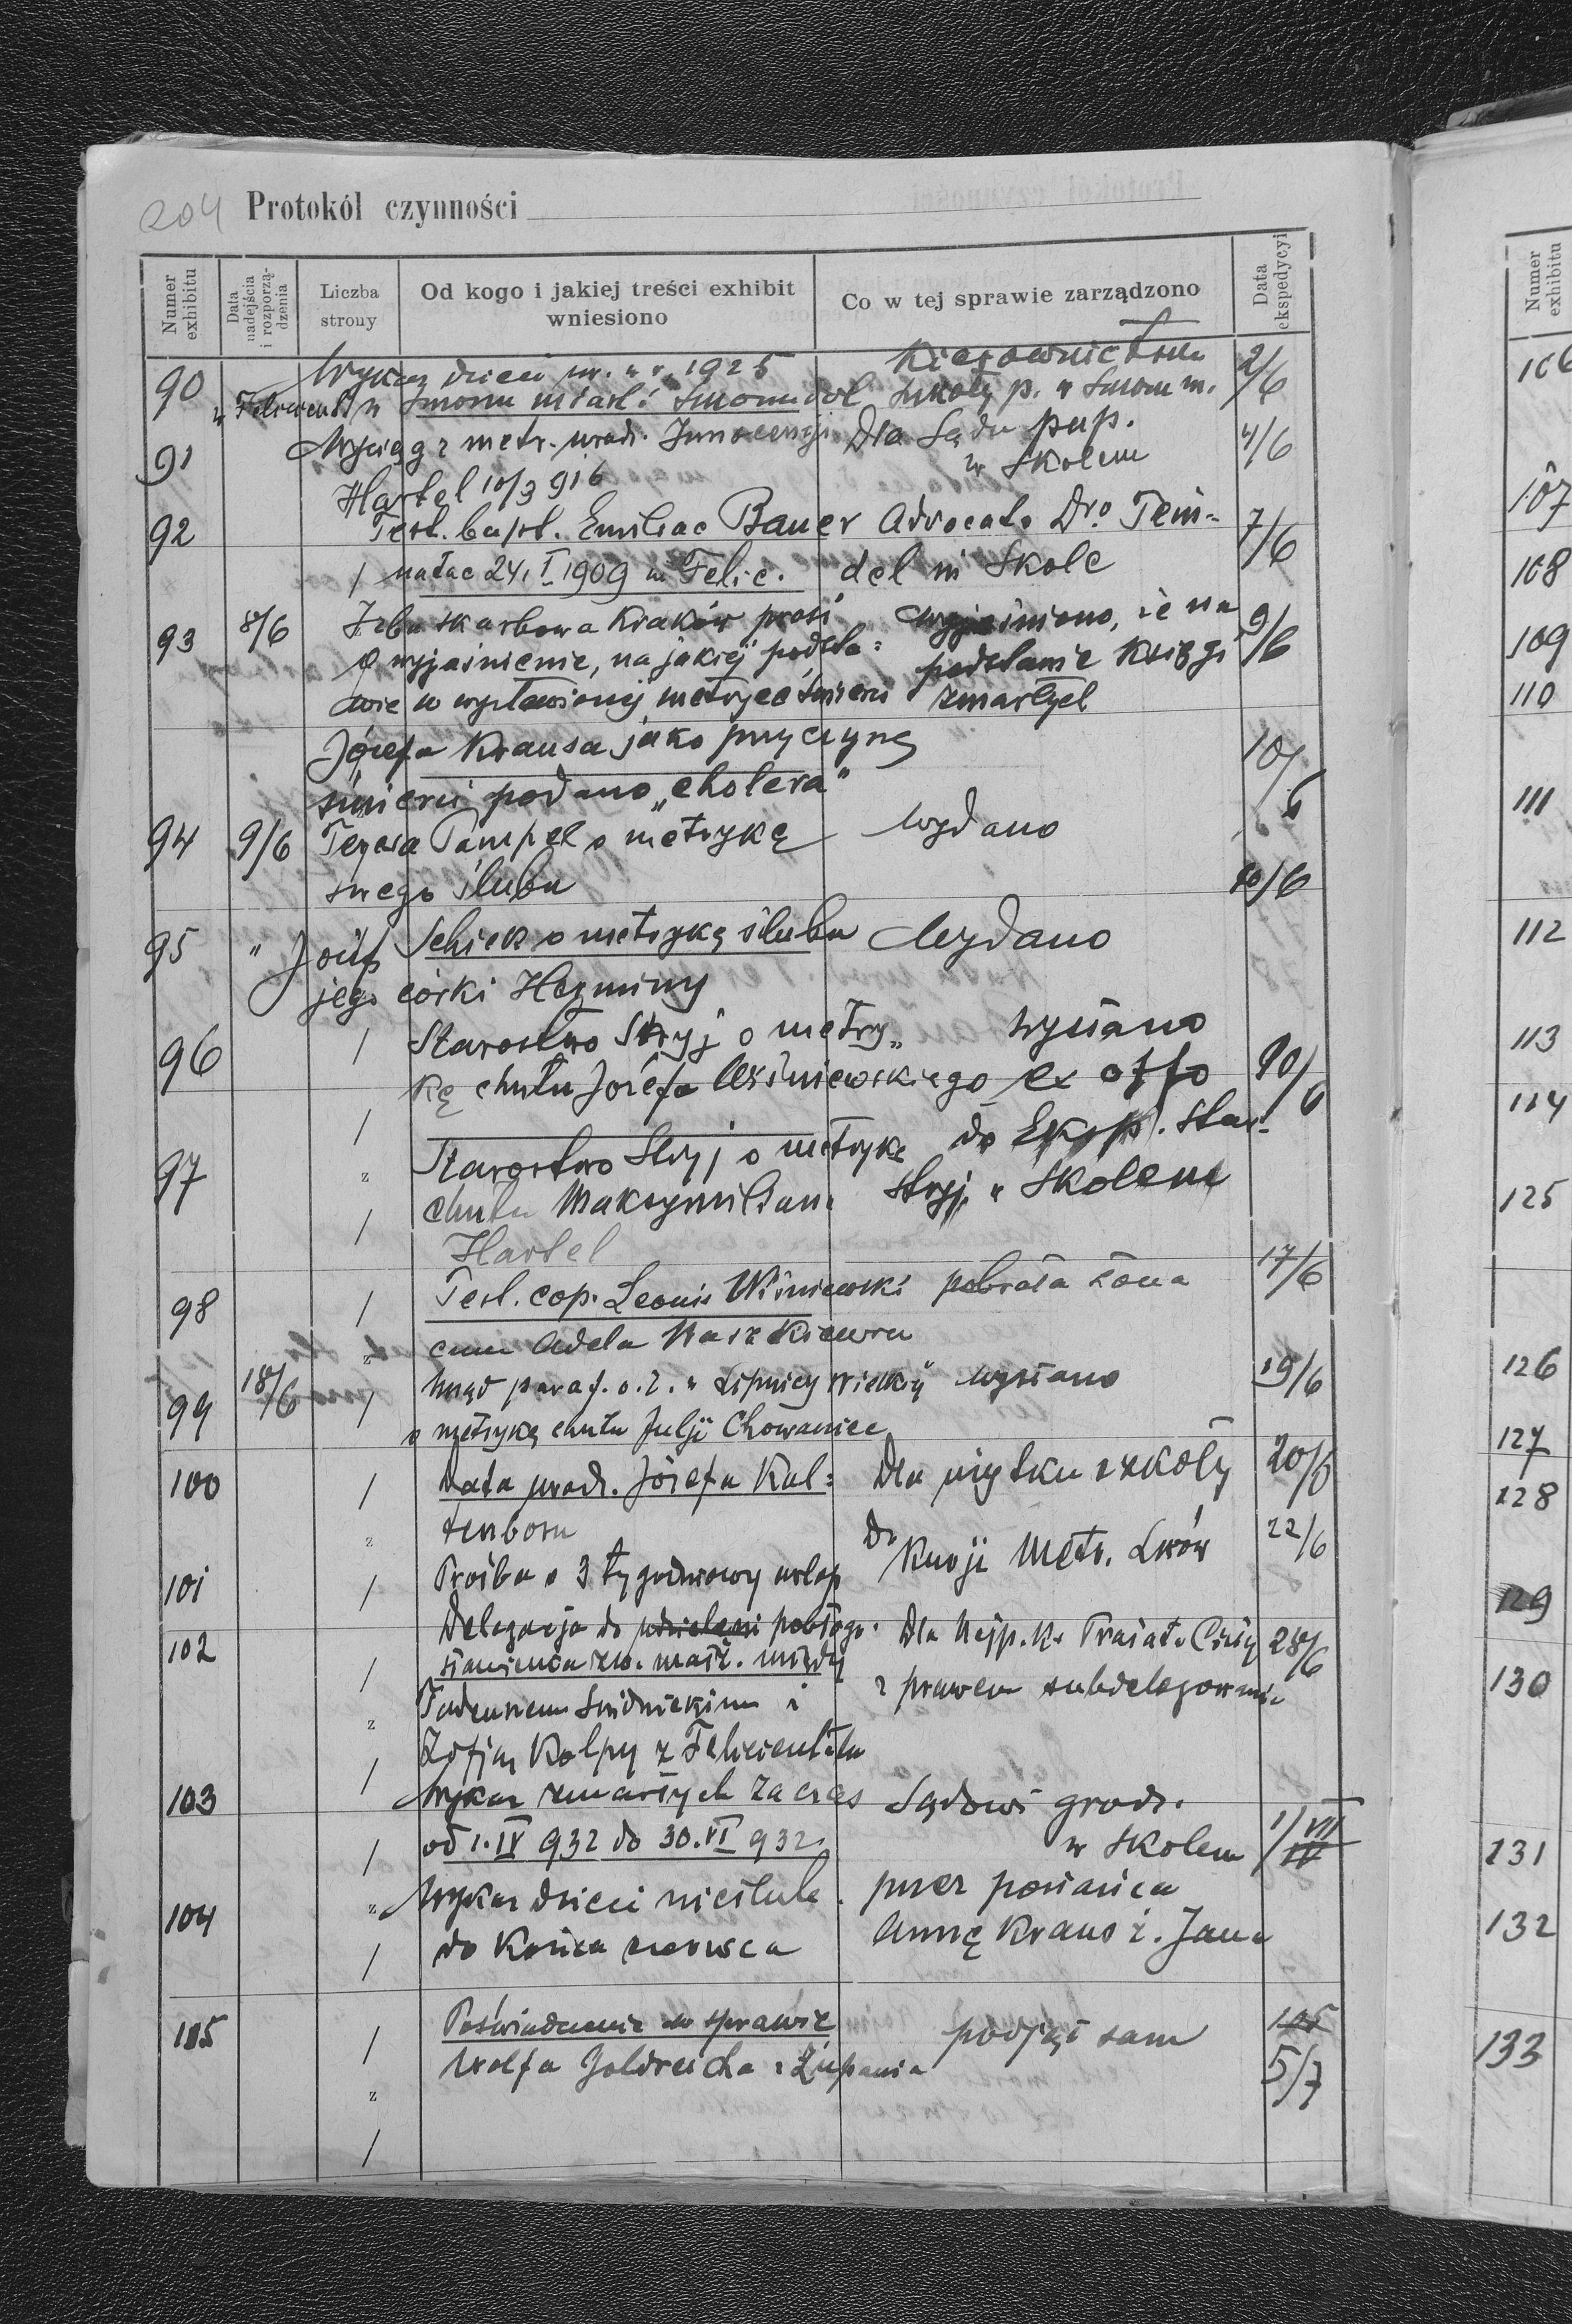 204 Protokół czynności
Numer exhibitu
Data nadejścia i rozporzą-dzenia
Liczba strony
Od kogo i jakiej treści exhibit wniesiono
Co w tej sprawie zarządzono
Data ekspedycyi
90 Wykaz dzieci ur. w r. 1925 Kierownictwu 2/6
w Smorzu szkoły p. w
91 Wyciąg z metr. urodz. Innocencji Dla Sądu pup. 4/6
Hartel 10/3 916 w Skolem
92 Test. bapt. Emiliae Bauer Advocato Dro Tein- 7/6
/ natae 24. I 1909 in Felic. del in Skole
93 8/6 Izba skarbowa Kraków prosi wyjaśniono, że na 9/6
o wyjaśnienie, na jakiej podsta= podstawie księgi
wie w wystawionej metryce śmierci zmarłych
Józefa Krausa jako przyczynę
śmierci podano „cholera" 10/6
94 9/6 Teresa Pampel o metrykę wydano
swego ślubu 10/6
95 " Józef Schick o metrykę ślubu Wydano
jego córki Herminy
96 / Starostwo Stryj o metry„ wysłano
kę chrztu Józefa Wiśniewskiego ex offo 10/6
/
97 z Starostwo Stryj o metrykę do Eksp. Star.
chrztu Maksymiliana Stryj. w Skolem
/ Hartel
98 / Test. cop. Leonis Wiśniewski pobrała żona 17/6
z cum Adela Waszkiewicz
99 18/6 / Urząd paraf. o. ł. w Lipnicy Wielkiej wysłano 19/6
o metrykę chrztu Julji Chowaniec
100 / Data urodz. Józefa Kal= Dla użytku szkoły 20/6
z tenborn
101 / Prośba o 3 tygodniowy urlop Do Kurji Metr. Lwów 22/6
102 Delegacja do udzielani pobłogo. Dla Najp. Ks. Prałata 28/6
/ sławienia zw. małż. między z prawem subdelegowania
z Tadeuszem Świdnickim i
Zofją Kolpy z Felizienthalu
/
103 Wykaz zmarłych za czas Sądowi grodz.
/ od 1. IV 932 do 30. VI 932 w Skolem 1/VII IV
104 z Wykaz dzieci nieślub. przez posłańca
/ do końca czerwca Annę Kraus ż. Jana
105 / Poświadczenie w sprawie podjął sam 105
Wolfa Goldreicha z Żupania 5/7
z
/
Numer exhibitu
106
107
108
109
110
111
112
113
114
125
126
127
128
129
130
131
132
133